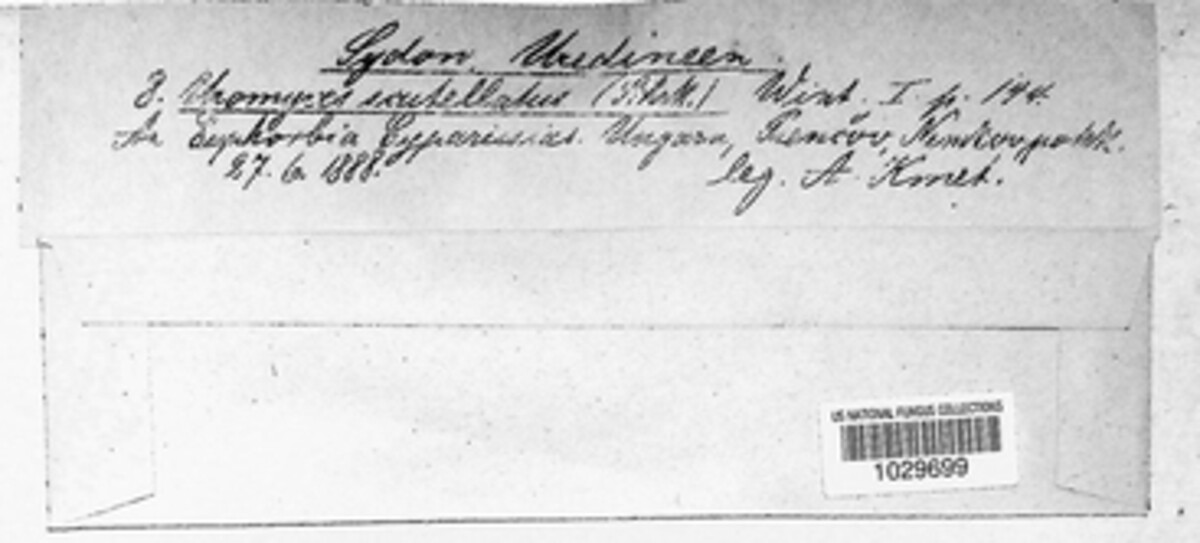 Sydow, Uredineen.
3. Uromyces scutellatus (Schrk.) Wint. I. p. 144.
An Euphorbia Cyparissias. Ungarn, Prenčov,
27. 6. 1888. leg. A. Kmet.
US NATIONAL FUNGUS COLLECTIONS
1029699